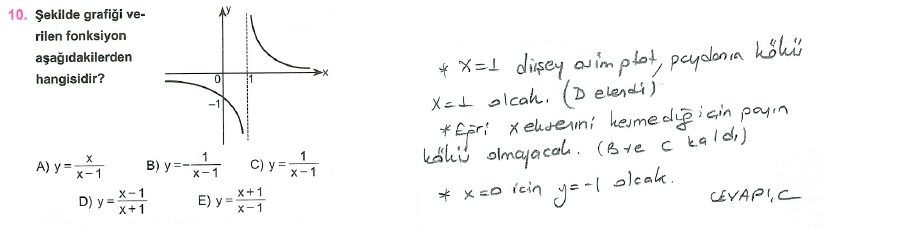 10. Şekilde grafiği ve-
rilen fonksiyon
aşağıdakilerden
hangisidir?
y
x
0
1
-1
A) y = x / x - 1
B) y = - 1 / x - 1
C) y = 1 / x - 1
D) y = x - 1 / x + 1
E) y = x + 1 / x - 1
* x=1 düşey asimptot, paydanın kökü
x=1 olcak. (D elendi)
* Eğri x eksenini kesmediği için payın
kökü olmayacak. (B ve C kaldı)
* x=0 için y=-1 olcak.
CEVAP, C